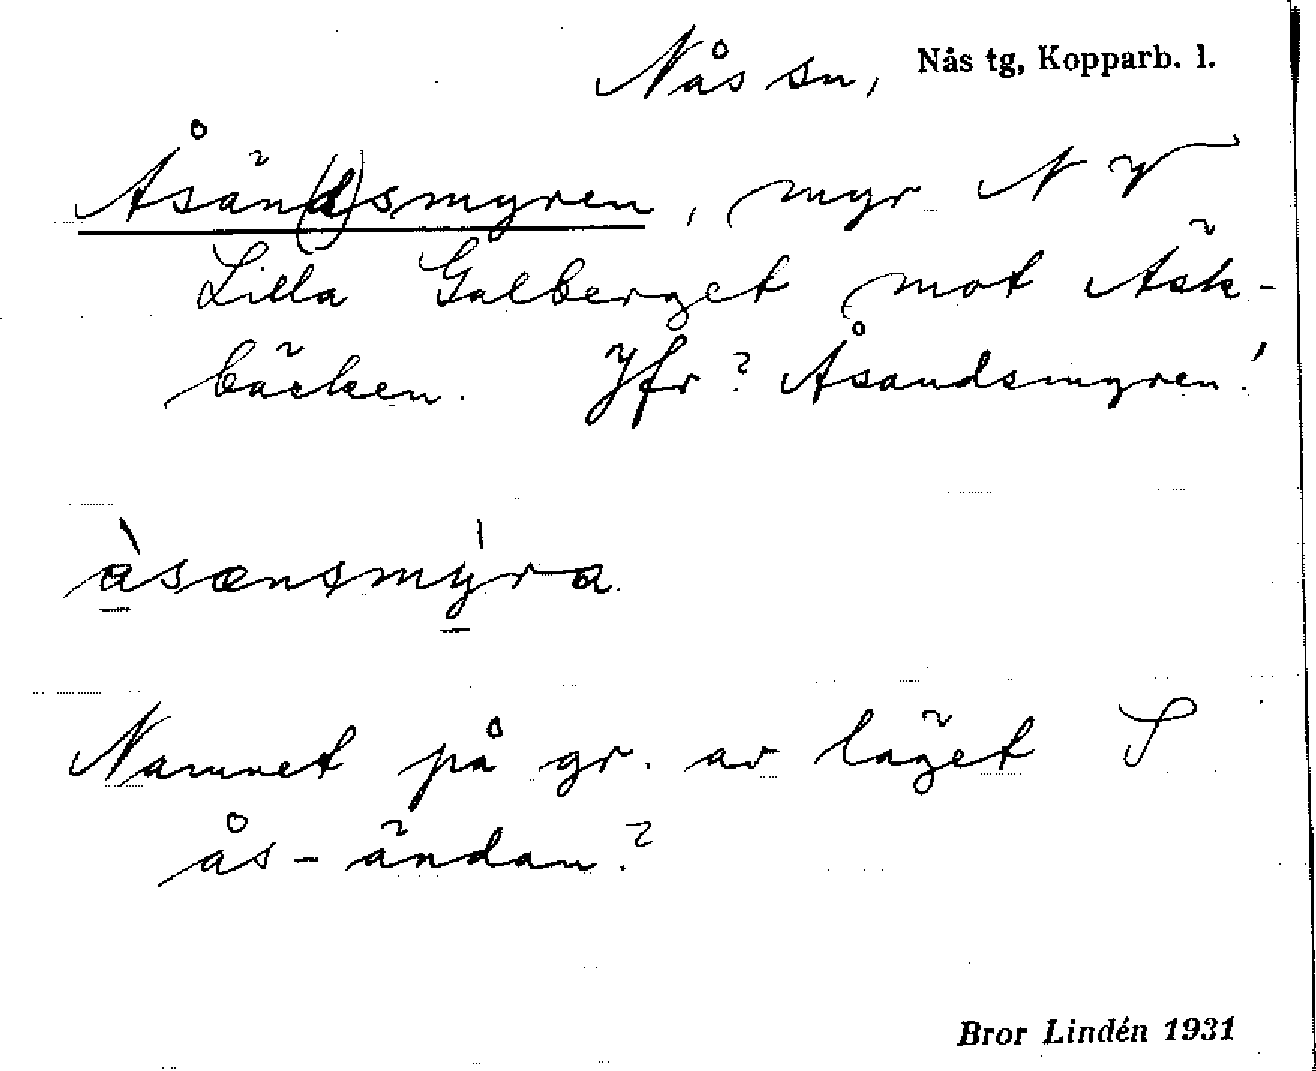 Nås sn, Nås tg, Kopparb. l.
Åsän(d)smyren, myr N V
Lilla Galberget mot Äsk-
bäcken. Jfr? Åsandsmyren!
àsænsmýra.
Namnet på gr. av läget S
ås-ändan?
Bror Lindén 1931